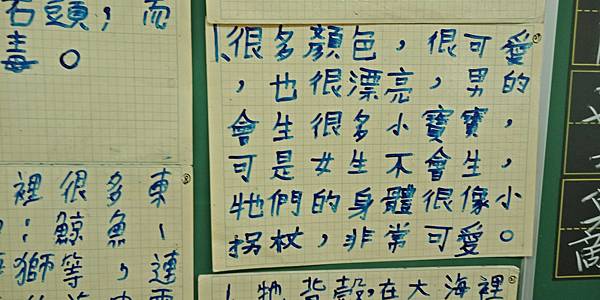 石頭，而
毒。
1、很多顏色，很可愛
，也很漂亮，男的
會生很多小寶寶，
可是女生不會生，
牠們的身體很像小
拐杖，非常可愛。
裡很多東
：鯨魚、
獅等，連
1、牠背殼，在大海裡